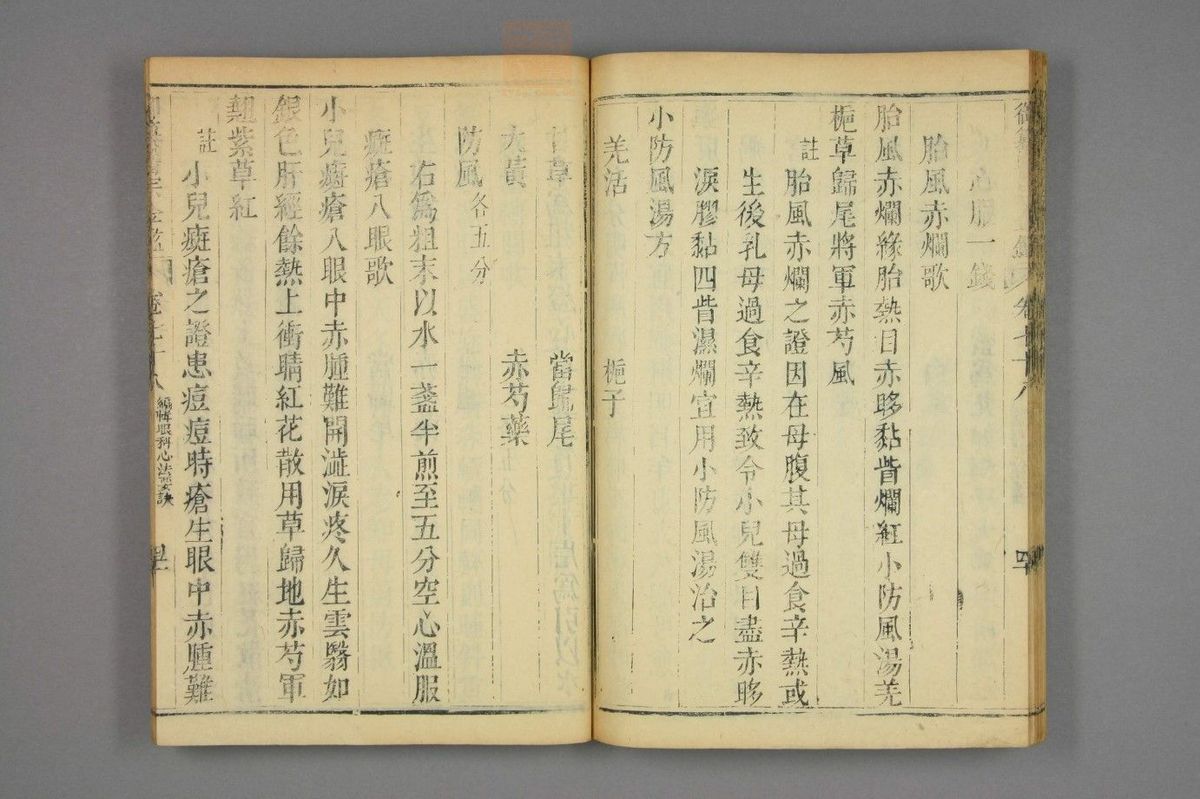 心服一錢
胎風赤爛歌
胎風赤爛緣胎熱目赤眵黏眥爛紅小防風湯羌
梔草歸尾將軍赤芍風
註胎風赤爛之證因在母腹其母過食辛熱或
生後乳母過食辛熱致令小兒雙目盡赤眵
淚膠黏四眥濕爛宜用小防風湯治之
小防風湯方
羌活 梔子
甘草 當歸尾
大黃 赤芍藥
防風各五分
右為粗末以水一盞半煎至五分空心溫服
癍瘡入眼歌
小兒癍瘡入眼中赤腫難開澁淚疼久生雲翳如
銀色肝經餘熱上衝睛紅花散用草歸地赤芍軍
翹紫草紅
註小兒癍瘡之證患痘痘時瘡生眼中赤腫難
卷七十八 編輯眼科心法要訣